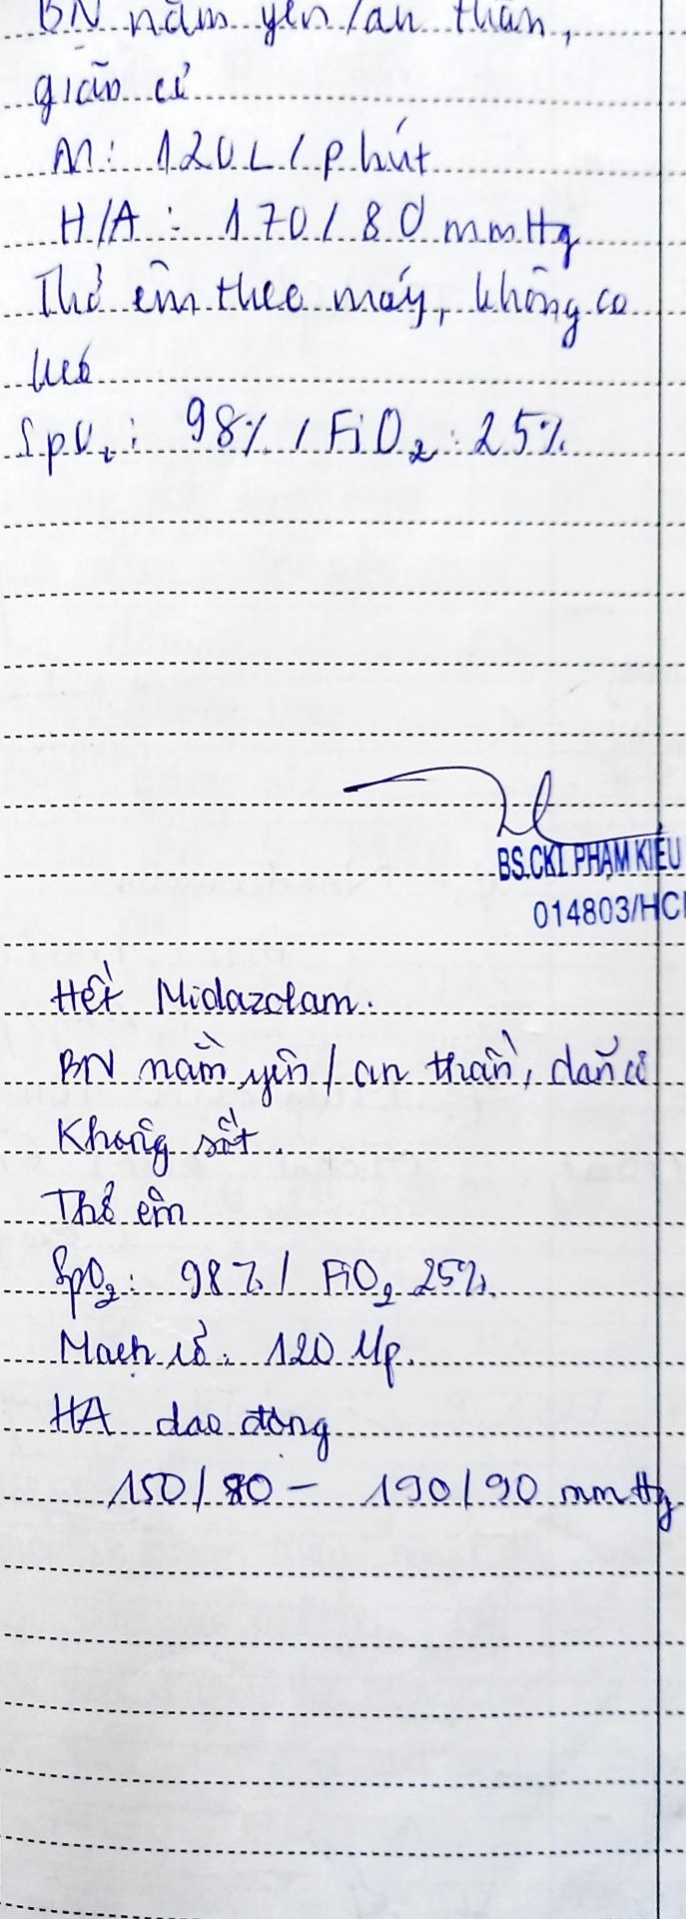 BN nằm yên/an thần,
giãn cơ
M: 120L/phút
H/A: 170/80mmHg
Thở êm theo máy, không co
kéo
SpO₂: 98%/FiO₂: 25%
BS.CKI. PHẠM KIỀU
014803/HC
Hết Midazolam.
BN nằm yên/an thần, dãn cơ
Không sốt.
Thở êm
SpO₂: 98%/ FiO₂ 25%.
Mạch rõ: 120 l/p.
HA dao động
150/80 - 190/90 mmHg